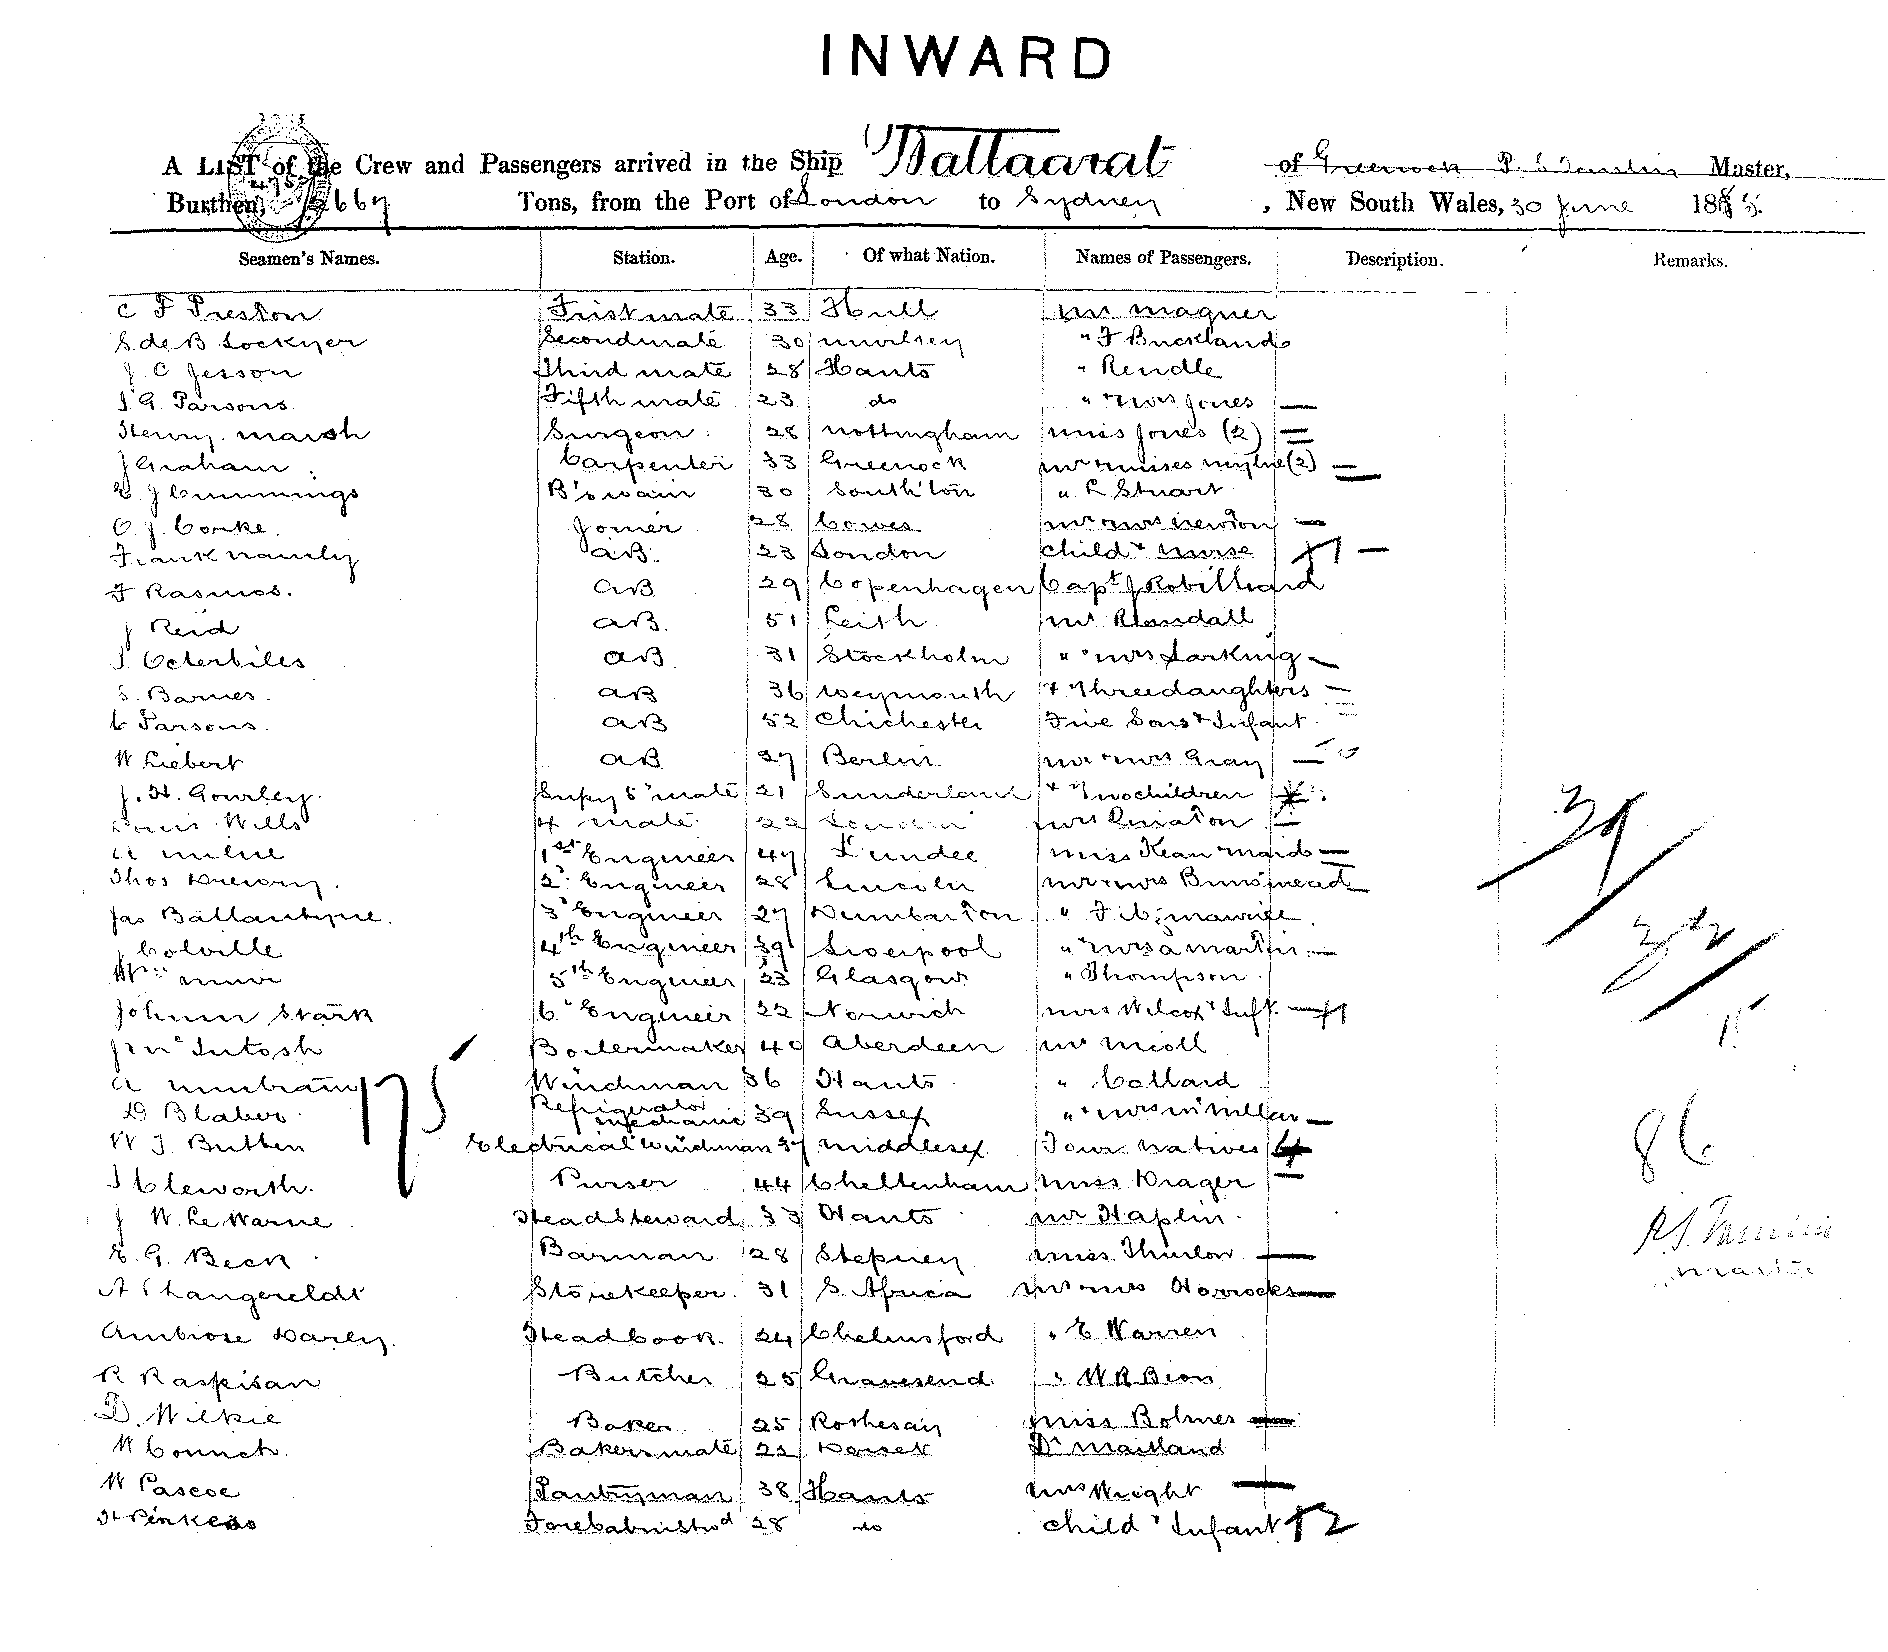 INWARD
A LIST of the Crew and Passengers arrived in the Ship Ballaarat of Greenock P. S. Tomlin Master,
Burthen, 2667 Tons, from the Port of London to Sydney, New South Wales, 30 June 188
Seamen's Names. Station. Age. Of what Nation. Names of Passengers. Description. Remarks.
C F Preston Frist mate 33 Hull Mr Magner
S de B Lockyer Second mate 30 " F Buckland
J C Jesson Third mate 28 Hants " Rendle
J G Parsons Fifth mate 23 do " & Mrs Jones
Henry Marsh Surgeon 28 Nottingham Miss Jones (2)
J Graham Carpenter 33 Greenock Mr & Misses (2)
J Cummings B'swain 30 South'ton " L Stuart
C. J. Corke Joiner 28 Cowes Mr & Mrs Newton
Frank AB. 23 London Child & Nurse
F Rasmos. AB 29 Copenhagen Capt J Robilliard
J Reid AB. 51 Leith Mr Randall
AB. 31 Stockholm " & Mrs Larking
S. Barnes AB 36 Weymouth & Three daughters
C Parsons. AB 52 Chichester Five Sons & Infant
W Liebert AB 27 Berlin Mr & Mrs Gray
J. H. Gourley. Supy 5 mate 21 Sunderland & Two children
Louis Wills 4 mate 22 London Mrs
A Milne 1st Engineer 47 Dundee Miss Kean & Maid
Thos Drewry. 2 Engineer 28 Lincoln Mr & Mrs
Jas Ballantyne. 3 Engineer 27 Dumbarton " F. C. Maurice
J Colville 4th Engineer 39 Liverpool " & Mrs A Martin
Wm Muir 5th Engineer 23 Glasgow " Thompson
John Stark 6 Engineer 22 Norwich Mrs Wilcox & Inft.
J McIntosh Boilermaker 40 Aberdeen Mr Nicoll
A Winchman 36 Hants " Collard
D Blaber Refrigerator mechanic 39 Sussex " & Mrs McMillan
W J Butten Electrical Winchman 37 Middlesex Four Natives 4
J Cleworth. Purser 44 Cheltenham Miss Krager
J W. Le Warne Head Steward 33 Hants Mr Haplin
E. G. Beck Barman 28 Stepney Miss Thurlow
A Storekeeper 31 S. Africa Mr & Mrs Horrocks
Ambrose Darley. Head Cook 24 Chelmsford " E Warren
R Raspisan Butcher 25 Gravesend " W R Bion
D. Wilkie Baker 25 Rothesay Miss Bolmes
W Bakers mate 22 Dorset Dr Maitland
W Pascoe Pantryman 38 Hants Mrs Wright
Forecabin stwd 28 do Child & Infant 12
175
39
32
15
86
P. S. Tomlin
Master